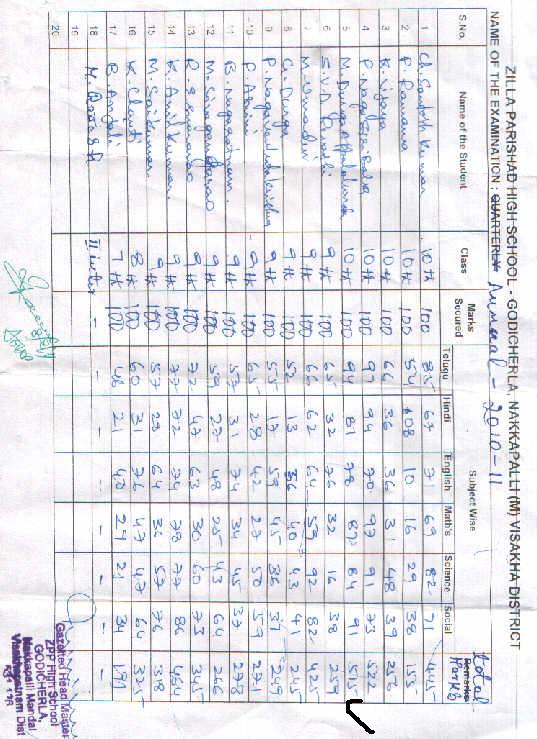 ZILLA PARISHAD HIGH SCHOOL - GODICHERLA, NAKKAPALLI (M) VISAKHA DISTRICT
NAME OF THE EXAMINATION : QUARTERLY Annual - 2010-11
S.No. Name of the Student Class Marks Secured Subject Wise Remarks Total Marks
Telugu Hindi English Maths Science Social
1 Ch. Santosh Kumar 10th 100 85 67 71 69 82 71 445
2 P. Ramana 10th 100 54 08 10 16 29 38 155
3 K. Vijaya 10th 100 66 36 36 31 48 39 256
4 P. Naga Raju 10th 100 97 94 70 97 91 73 522
5 M. Durga 10th 100 94 81 78 87 84 91 515
6 S.V.D. Revathi 9th 100 65 32 76 32 16 38 259
7 M. Umadevi 9th 100 66 62 64 59 92 82 425
8 G. Durga 9th 100 52 13 56 40 43 41 245
9 P. 9th 100 55 17 59 45 36 37 249
10 P. 9th 100 65 28 42 27 50 59 271
11 B. Nagaratnam 9th 100 57 31 74 34 45 37 278
12 M. 9th 100 59 27 48 25 43 64 266
13 R. Eswararao 9th 100 72 47 63 30 60 73 345
14 K. Anil Kumar 9th 100 77 72 74 78 77 86 464
15 M. Saikumar 9th 100 57 64 36 57 76
16 K. Chanti 8th 100 60 31 76 47 47 64 325
17 B. Anjali 7th 100 48 21 40 29 21 34
18 M. II inter - - - - - - - -
19
20
Gazetted Head Master
ZPP High School
GODICHERLA,
Nakkapalli Mandal
Visakhapatnam Dist